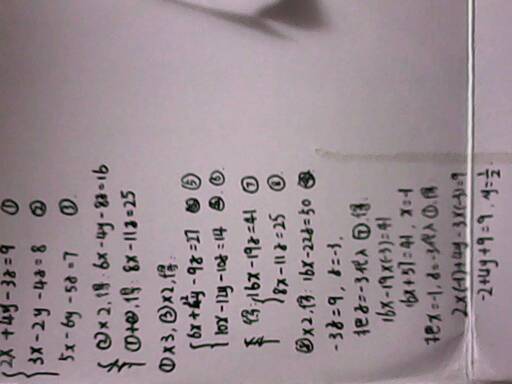 2x+4y-3z=9 ①
3x-2y-4z=8 ②
5x-6y-5z=7 ③
②×2,得:6x-4y-8z=16
①+②,得:8x-11z=25
①×3,③×2,得:
6x+12y-9z=27 ⑤
10x-12y-10z=14 ⑥
得:16x-19z=41 ⑦
8x-11z=25 ⑧
⑧×2,得:16x-22z=50
-3z=9,z=-3.
把z=-3代入⑦,得:
16x-19×(-3)=41
16x+57=41,x=-1
把x=-1,z=-3代入①,得
2×(-1)+4y-3×(-3)=9
-2+4y+9=9,y=½.